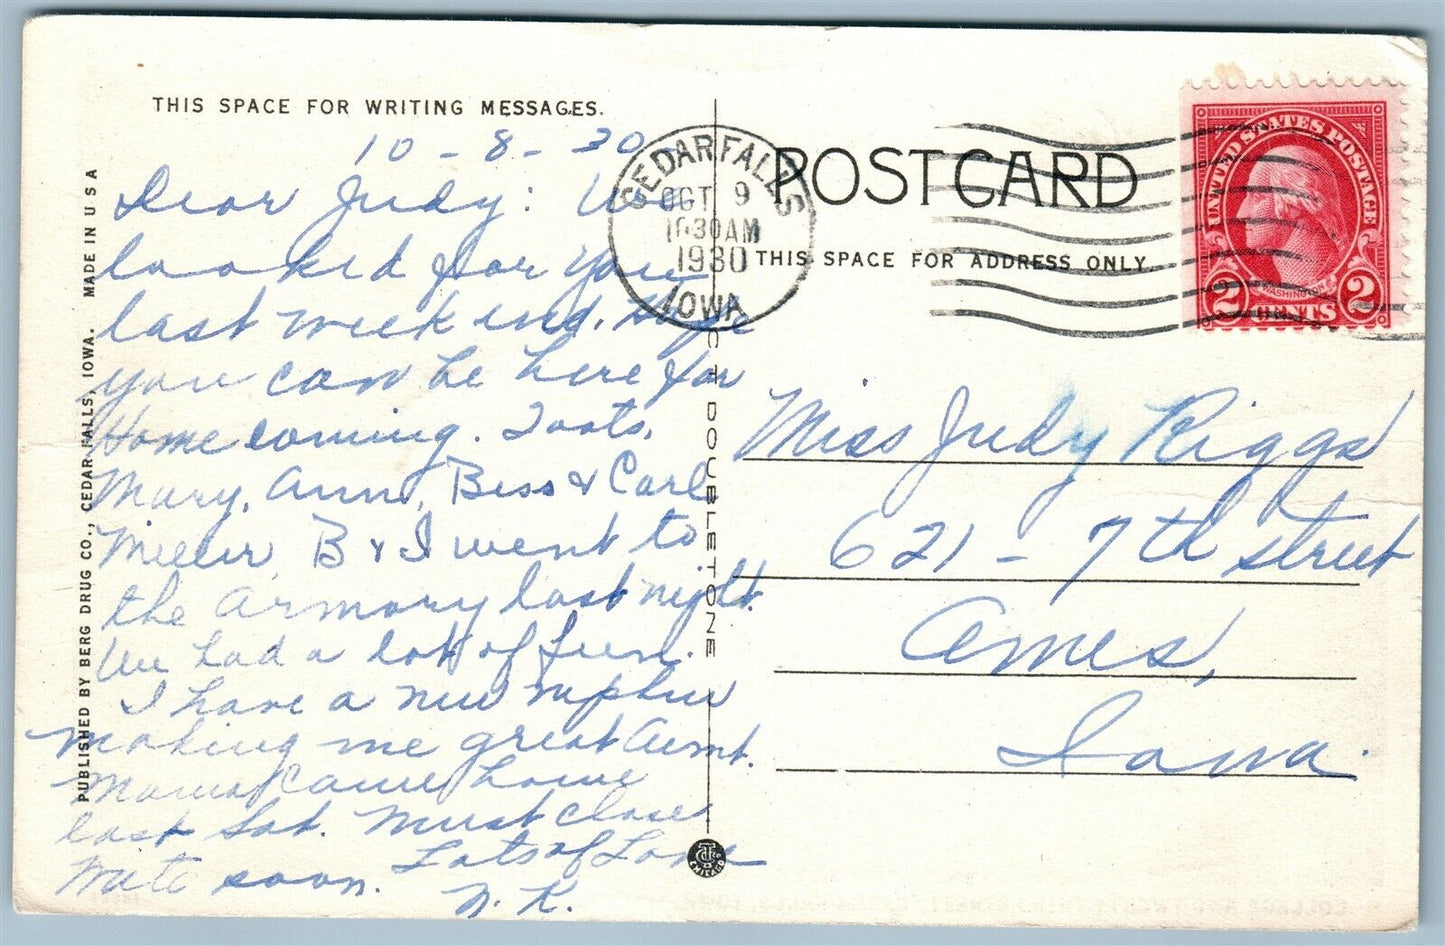 THIS SPACE FOR WRITING MESSAGES.
10-8-30
Dear Judy: We
looked for you
last week end. Hope
you can be here for
Homecoming. Toots,
Mary, Ann, Bess & Carl
Miller, B & I went to
the Armory last night.
We had a lot of fun.
I have a new nephew
making me great Aunt.
Mama came home
last Sat. Must close
Lots of Love
Write soon.
N. K.
PUBLISHED BY BERG DRUG CO., CEDAR FALLS, IOWA. MADE IN USA
C T DOUBLETONE
CHICAGO
CEDAR FALLS
OCT 9
10:30AM
1930
IOWA
POSTCARD
THIS SPACE FOR ADDRESS ONLY.
UNITED STATES POSTAGE
WASHINGTON
2 CENTS 2
Miss Judy Riggs
621 - 7th street
Ames,
Iowa.